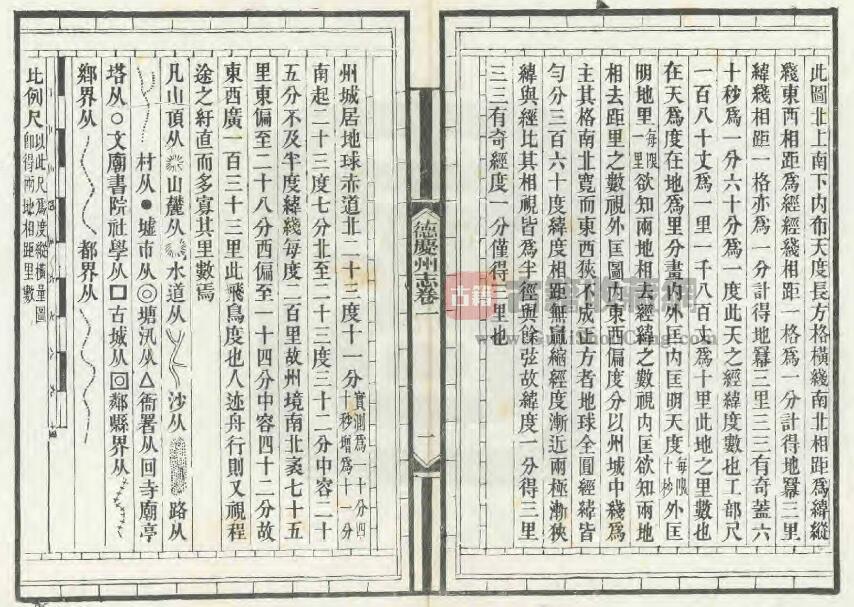 此圖北上南下內布天度長方格橫綫南北相距爲緯縱
綫東西相距爲經經綫相距一格爲一分計得地冪三里
緯綫相距一格亦爲一分計得地冪三里三三有奇蓋六
十秒爲一分六十分爲一度此天之經緯度數也工部尺
一百八十丈爲一里一千八百丈爲十里此地之里數也
在天爲度在地爲里分畫內外匡內匡明天度每限十秒外匡
明地里每限一里欲知兩地相去經緯之數視內匡欲知兩地
相去距里之數視外匡圖之東西偏度分以州城中綫爲
主其格南北寬而東西狹不成正方者地球全圓經緯皆
勻分三百六十度緯度相距無贏縮經度漸近兩極漸狹
緯與經比其相視皆爲半徑與餘弦故緯度一分得三里
三三有奇經度一分僅得三里也
德慶州志卷一
一
州城居地球赤道北二十三度十一分實測爲一十分四十秒增爲十一分
南起二十三度七分北至二十三度三十二分中容二十
五分不及半度緯綫每度二百里故州境南北袤七十五
里東偏至二十八分西偏至一十四分中容四十二分故
東西廣一百三十三里此飛鳥度也人迹舟行則又視程
途之紆直而多寡其里數焉
凡山頂从山麓从水道从沙从路从
村从●墟市从◎塘汛从△衙署从回寺廟亭
塔从○文廟書院社學从口古城从回鄰縣界从
鄉界从都界从
比例尺以此尺爲度縱橫量圖卽得兩地相距里數
古籍